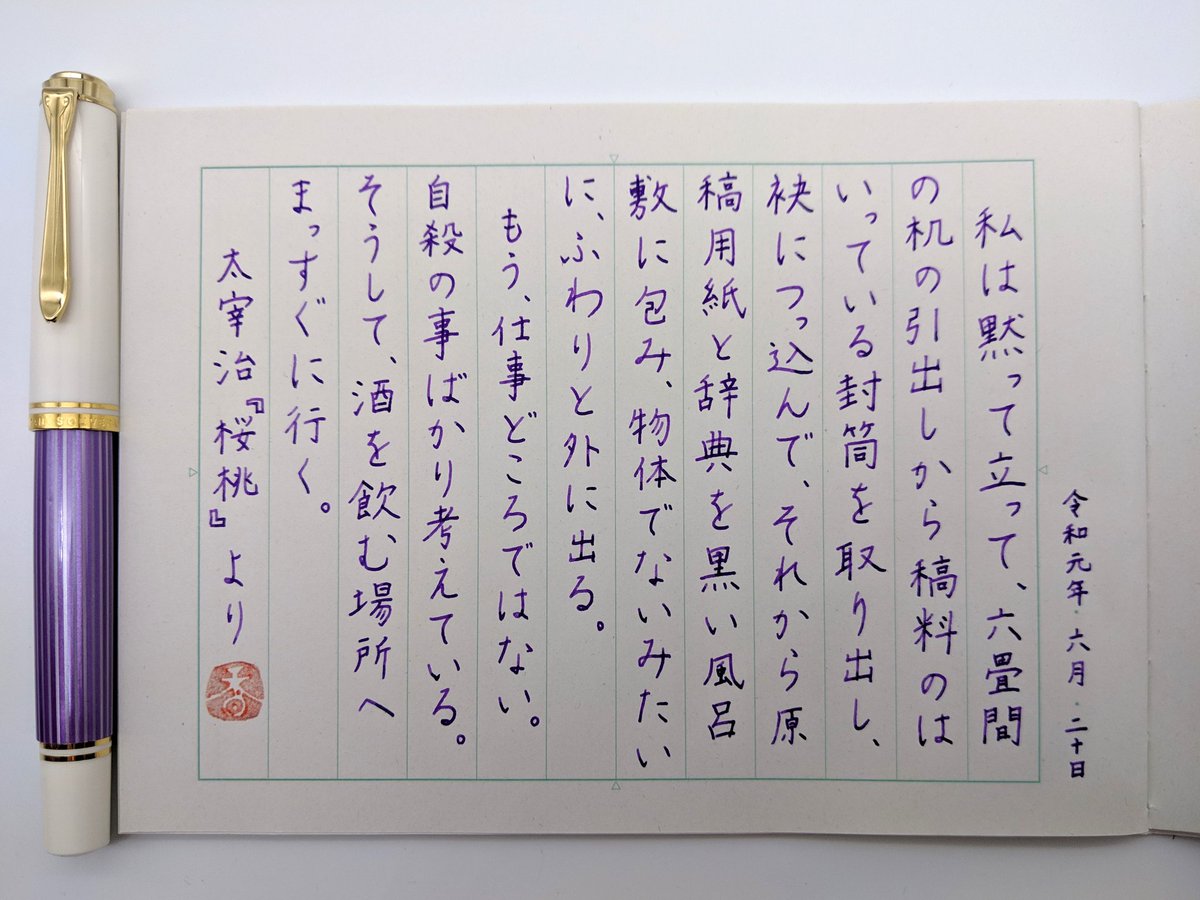 令和元年・六月・二十日
私は黙って立って、六畳間
の机の引出しから稿料のは
いっている封筒を取り出し、
袂につっ込んで、それから原
稿用紙と辞典を黒い風呂
敷に包み、物体でないみたい
に、ふわりと外に出る。
もう、仕事どころではない。
自殺の事ばかり考えている。
そうして、酒を飲む場所へ
まっすぐに行く。
太宰治『桜桃』より